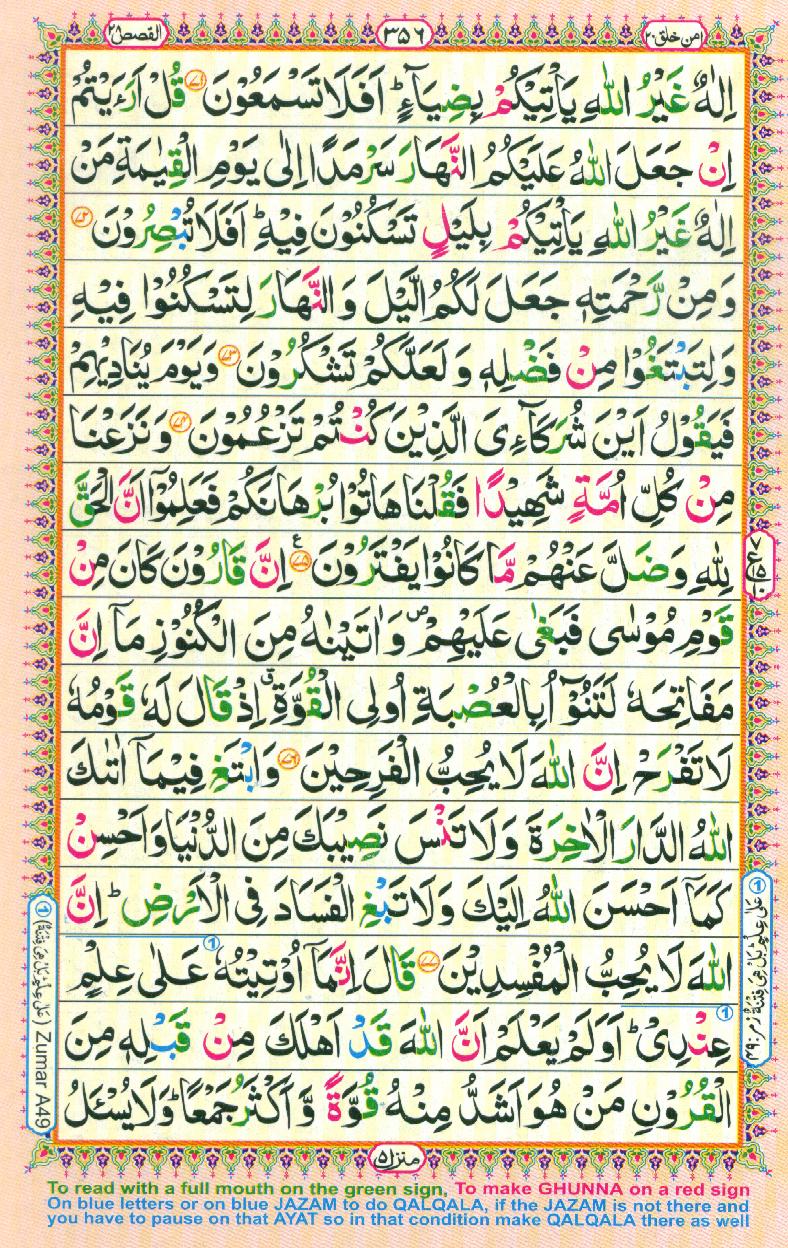 امن خلق ۲۰
۳۵۶
القصص ۲۸
اِلٰهٌ غَيْرُ اللّٰهِ يَاْتِيْكُمْ بِضِيَآءٍ ؕ اَفَلَا تَسْمَعُوْنَ ﴿۷۱﴾ قُلْ اَرَءَيْتُمْ
اِنْ جَعَلَ اللّٰهُ عَلَيْكُمُ النَّهَارَ سَرْمَدًا اِلٰى يَوْمِ الْقِيٰمَةِ مَنْ
اِلٰهٌ غَيْرُ اللّٰهِ يَاْتِيْكُمْ بِلَيْلٍ تَسْكُنُوْنَ فِيْهِ ؕ اَفَلَا تُبْصِرُوْنَ ﴿۷۲﴾
وَ مِنْ رَّحْمَتِهٖ جَعَلَ لَكُمُ الَّيْلَ وَ النَّهَارَ لِتَسْكُنُوْا فِيْهِ
وَلِتَبْتَغُوْا مِنْ فَضْلِهٖ وَ لَعَلَّكُمْ تَشْكُرُوْنَ ﴿۷۳﴾ وَيَوْمَ يُنَادِيْهِمْ
فَيَقُوْلُ اَيْنَ شُرَكَآءِيَ الَّذِيْنَ كُنْتُمْ تَزْعُمُوْنَ ﴿۷۴﴾ وَ نَزَعْنَا
مِنْ كُلِّ اُمَّةٍ شَهِيْدًا فَقُلْنَا هَاتُوْا بُرْهَانَكُمْ فَعَلِمُوْۤا اَنَّ الْحَقَّ
لِلّٰهِ وَ ضَلَّ عَنْهُمْ مَّا كَانُوْا يَفْتَرُوْنَ ﴿۷۵﴾ ع اِنَّ قَارُوْنَ كَانَ مِنْ
قَوْمِ مُوْسٰى فَبَغٰى عَلَيْهِمْ ۪ وَ اٰتَيْنٰهُ مِنَ الْكُنُوْزِ مَاۤ اِنَّ
مَفَاتِحَهٗ لَتَنُوْٓاُ بِالْعُصْبَةِ اُولِى الْقُوَّةِ ۗ اِذْ قَالَ لَهٗ قَوْمُهٗ
لَا تَفْرَحْ اِنَّ اللّٰهَ لَا يُحِبُّ الْفَرِحِيْنَ ﴿۷۶﴾ وَابْتَغِ فِيْمَاۤ اٰتٰىكَ
اللّٰهُ الدَّارَ الْاٰخِرَةَ وَ لَا تَنْسَ نَصِيْبَكَ مِنَ الدُّنْيَا وَ اَحْسِنْ
كَمَاۤ اَحْسَنَ اللّٰهُ اِلَيْكَ وَلَا تَبْغِ الْفَسَادَ فِى الْاَرْضِ ؕ اِنَّ
اللّٰهَ لَا يُحِبُّ الْمُفْسِدِيْنَ ﴿۷۷﴾ قَالَ اِنَّمَاۤ اُوْتِيْتُهٗ ① عَلٰى عِلْمٍ
① عِنْدِيْ ؕ اَوَلَمْ يَعْلَمْ اَنَّ اللّٰهَ قَدْ اَهْلَكَ مِنْ قَبْلِهٖ مِنَ
الْقُرُوْنِ مَنْ هُوَ اَشَدُّ مِنْهُ قُوَّةً وَّ اَكْثَرُ جَمْعًا ؕ وَلَا يُسْـَٔلُ
① عَلٰى عِلْمٍ ؕ بَلْ هِيَ فِتْنَةٌ زمر: ۴۹
① (عَلٰى عِلْمٍ بَلْ هِيَ فِتْنَةٌ) Zumar A49
منزل ۵
To read with a full mouth on the green sign, To make GHUNNA on a red sign
On blue letters or on blue JAZAM to do QALQALA, if the JAZAM is not there and
you have to pause on that AYAT so in that condition make QALQALA there as well